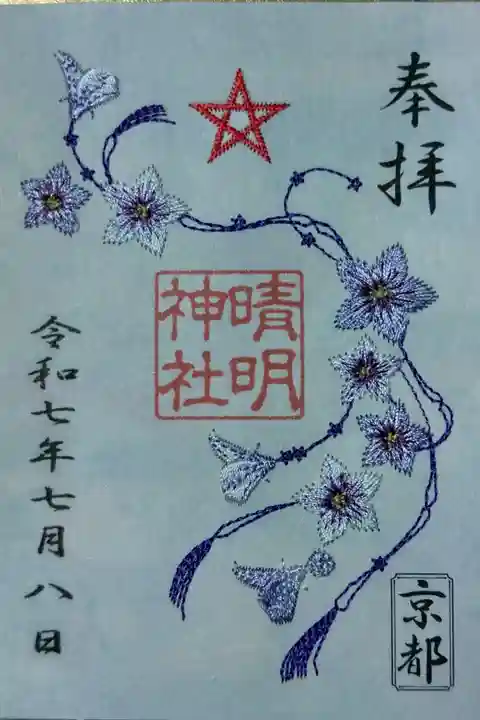 奉拝
晴明
神社
令和七年七月八日
京都